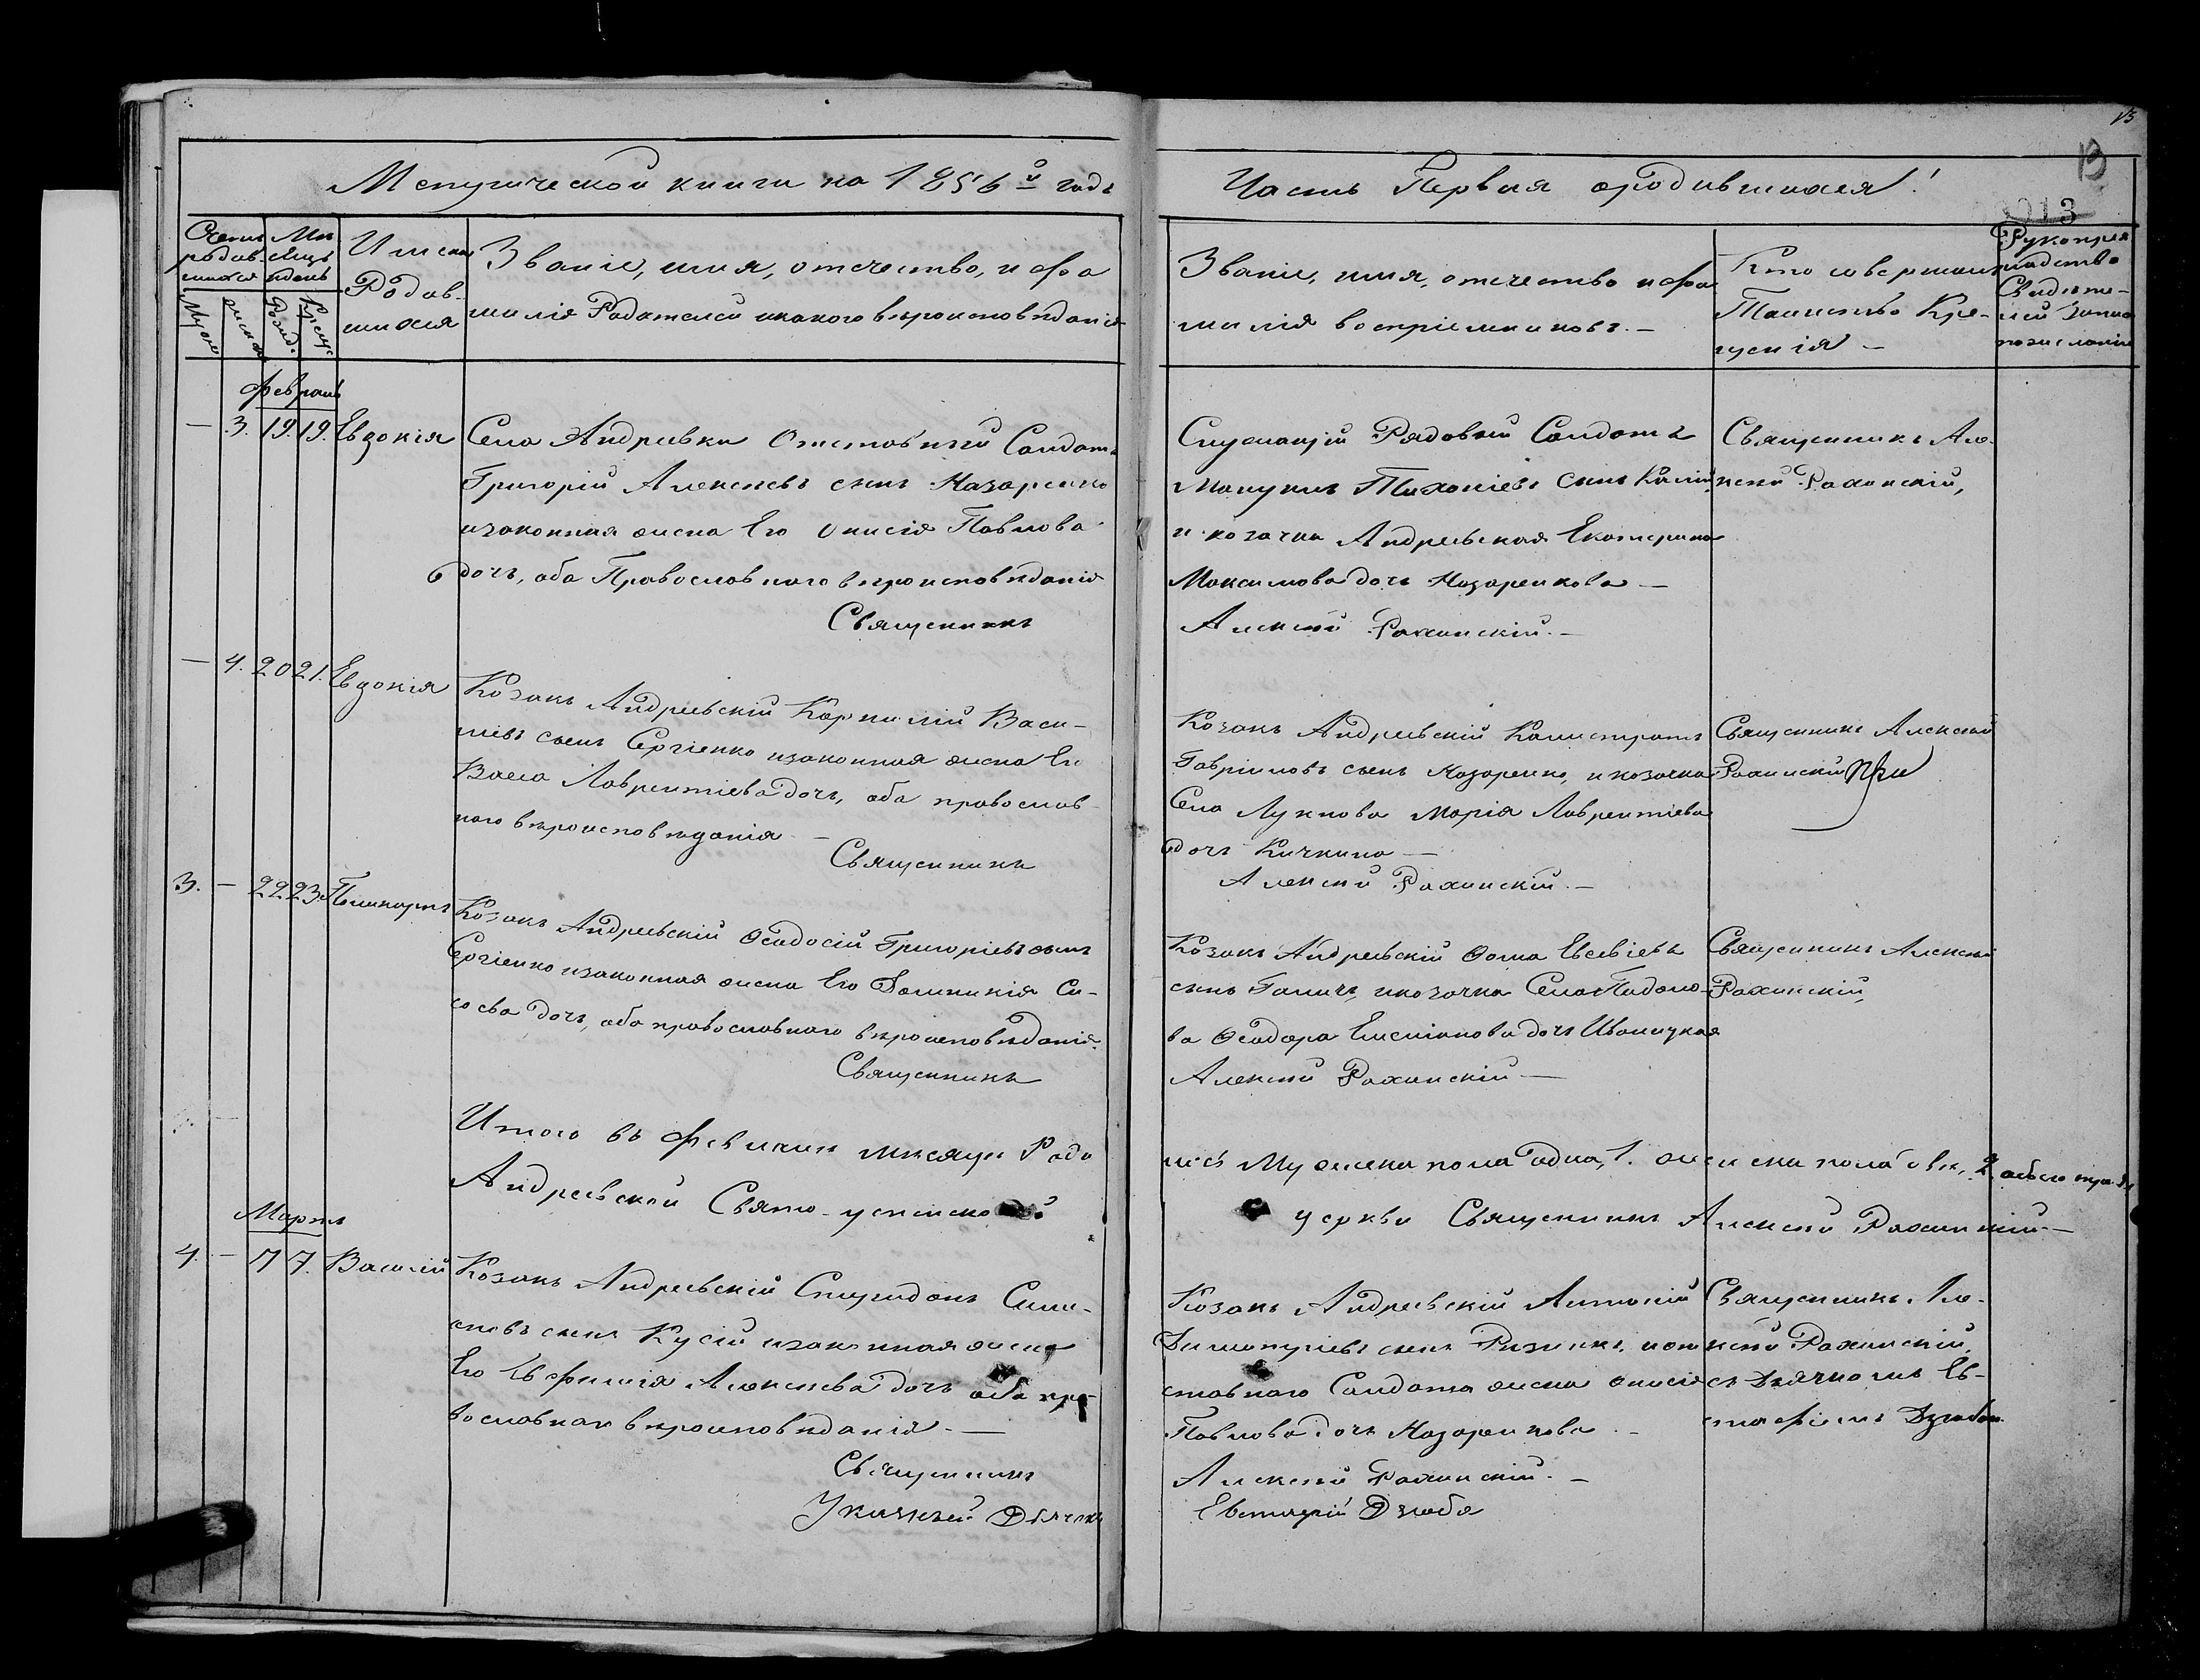 13
13
013
Метрической книги на 1856й годъ
Часть Первая ородившихся!
Счетъ родив-шихся
Мѣсяцъ идень
Имена Родив-шихся
Званіе, имя, отчество, и фа
милія Родителей икакого вѣроисповѣданія
Званіе, имя, отчество и фа
милія воспріемниковъ. —
Кто совершалъ
Таинство Кре-
щенія —
Рукопри
кладство
Свидѣте-
лей запис
Муж
женск
Рожд.
Крещ
Февраль
— 3. 19. 19. Евдокія
Села Андреевки Отставный Салдатъ
Григорій Алексѣевъ сынъ Назаренко
изаконная жена Его Онисія Павлова
дочь, оба Православнаго вѣроисповѣданія
Священникъ
Служащій Рядовый Салдатъ
Мануилъ Тихоніевъ сынъ
и козачка Андреевская Екатерина
Максимова дочь Назаренкова —
Алексѣй Рахинскій. —
Священникъ Але-
ксѣй Рахинскій,
— 4. 20 21. Евдокія
Козакъ Андреевскій Корнилій Васи-
ліевъ сынъ Сергіенко изаконная жена Его
Васса Лаврентіева дочь, оба православ-
наго вѣроисповѣданія —
Священникъ
Козакъ Андреевскій Калистратъ
Гавріиловъ сынъ Назаренко, и козачка
Села Лукнова Марія Лаврентіева
дочь Кичкина —
Алексѣй Рахинскій. —
Священникъ Алексѣй
Рахинскій
3. — 22 23. Поликарпъ
Козакъ Андреевскій Ѳеодосій Григоріевъ сынъ
Сергіенко изаконная жена Его Домникія Си-
соева дочь, оба православнаго вѣроисповѣданія.
Священникъ
Козакъ Андреевскій Ѳома Евсевіевъ
сынъ Галичъ, икозачка Села
ва Ѳеодора Емиліанова дочь Иваницкая
Алексѣй Рахинскій —
Священникъ Алексѣй
Рахинскій,
Итого въ Февралѣ мѣсяцѣ Роди
лось Мужеска пола одна, 1. женска пола двѣ, 2. обоего три. 3.
Андреевской Свято-успенской
церкви Священникъ Алексѣй Рахинскій —
Мартъ
4. — 7 7. Василій
Козакъ Андреевскій Спиридонъ Симе-
оновъ сынъ Кусій изаконная жена
Его Евфимія Алексѣева дочь оба пра-
вославнаго вѣроисповѣданія. —
Священникъ
Указный Дьячекъ
Козакъ Андреевскій Антоній
Димитріевъ сынъ Ризникъ, иот
ставнаго Салдата жена Онисія
Павлова дочь Назаренкова. —
Алексѣй Рахинскій. —
Евстафій Дзюба
Священникъ Але-
ксѣй Рахинскій,
съ Дьячкомъ Ев-
стафіемъ Дзюбою.